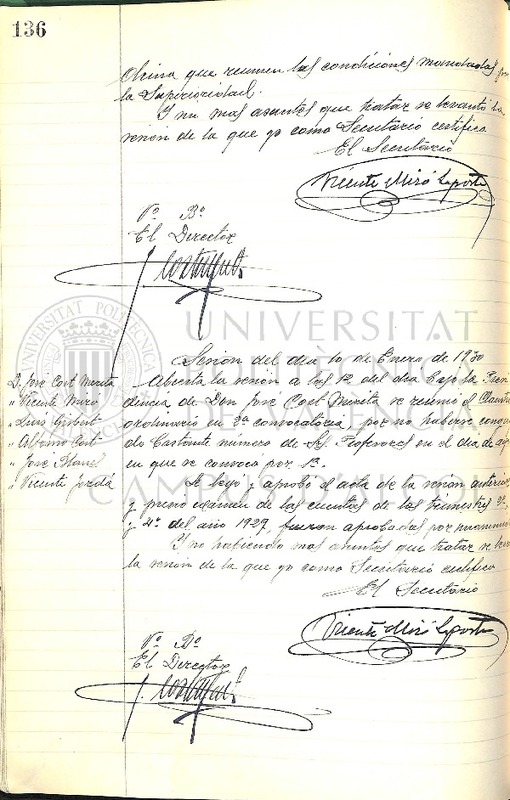 136
que reunen las condiciones
la Superioridad.
Y no mas asuntos que tratar se levantó la
sesion de la que yo como Secretario certifico
El Secretario
Vicente Miró Laporta
Vº Bº
El Director
UNIVERSITAT
POLITÈCNICA
DE VALÈNCIA
CAMPUS D'ALCOI
Sesion del dia 10 de Enero de 1930
D. Jose Cort Merita
" Vicente Miró
" Luis Gisbert
" Albino Cort
" Jose
" Vicente Jordá
Abierta la sesion a las 12 del dia bajo la Presi
dencia de Don Jose Cort Merita se reunió el Claustro
ordinario en 2ª convocatoria, por no haberse congrega
do bastante número de Sres Profesores en el dia de
en que se convocó por 1ª.
Se leyó y aprobó el acta de la sesion anterior
y previo exámen de las cuentas de los trimestres 3º
y 4º del año 1929, fueron aprobadas por
Y no habiendo mas asuntos que tratar se
la sesion de la que yo como Secretario certifico
El Secretario
Vicente Miró Laporta
Vº Bº
El Director